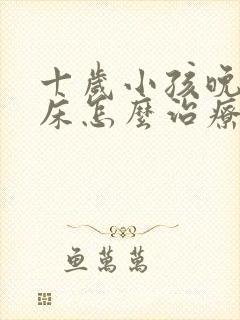 十歲小孩晚
床怎麼治療
鱼萬萬